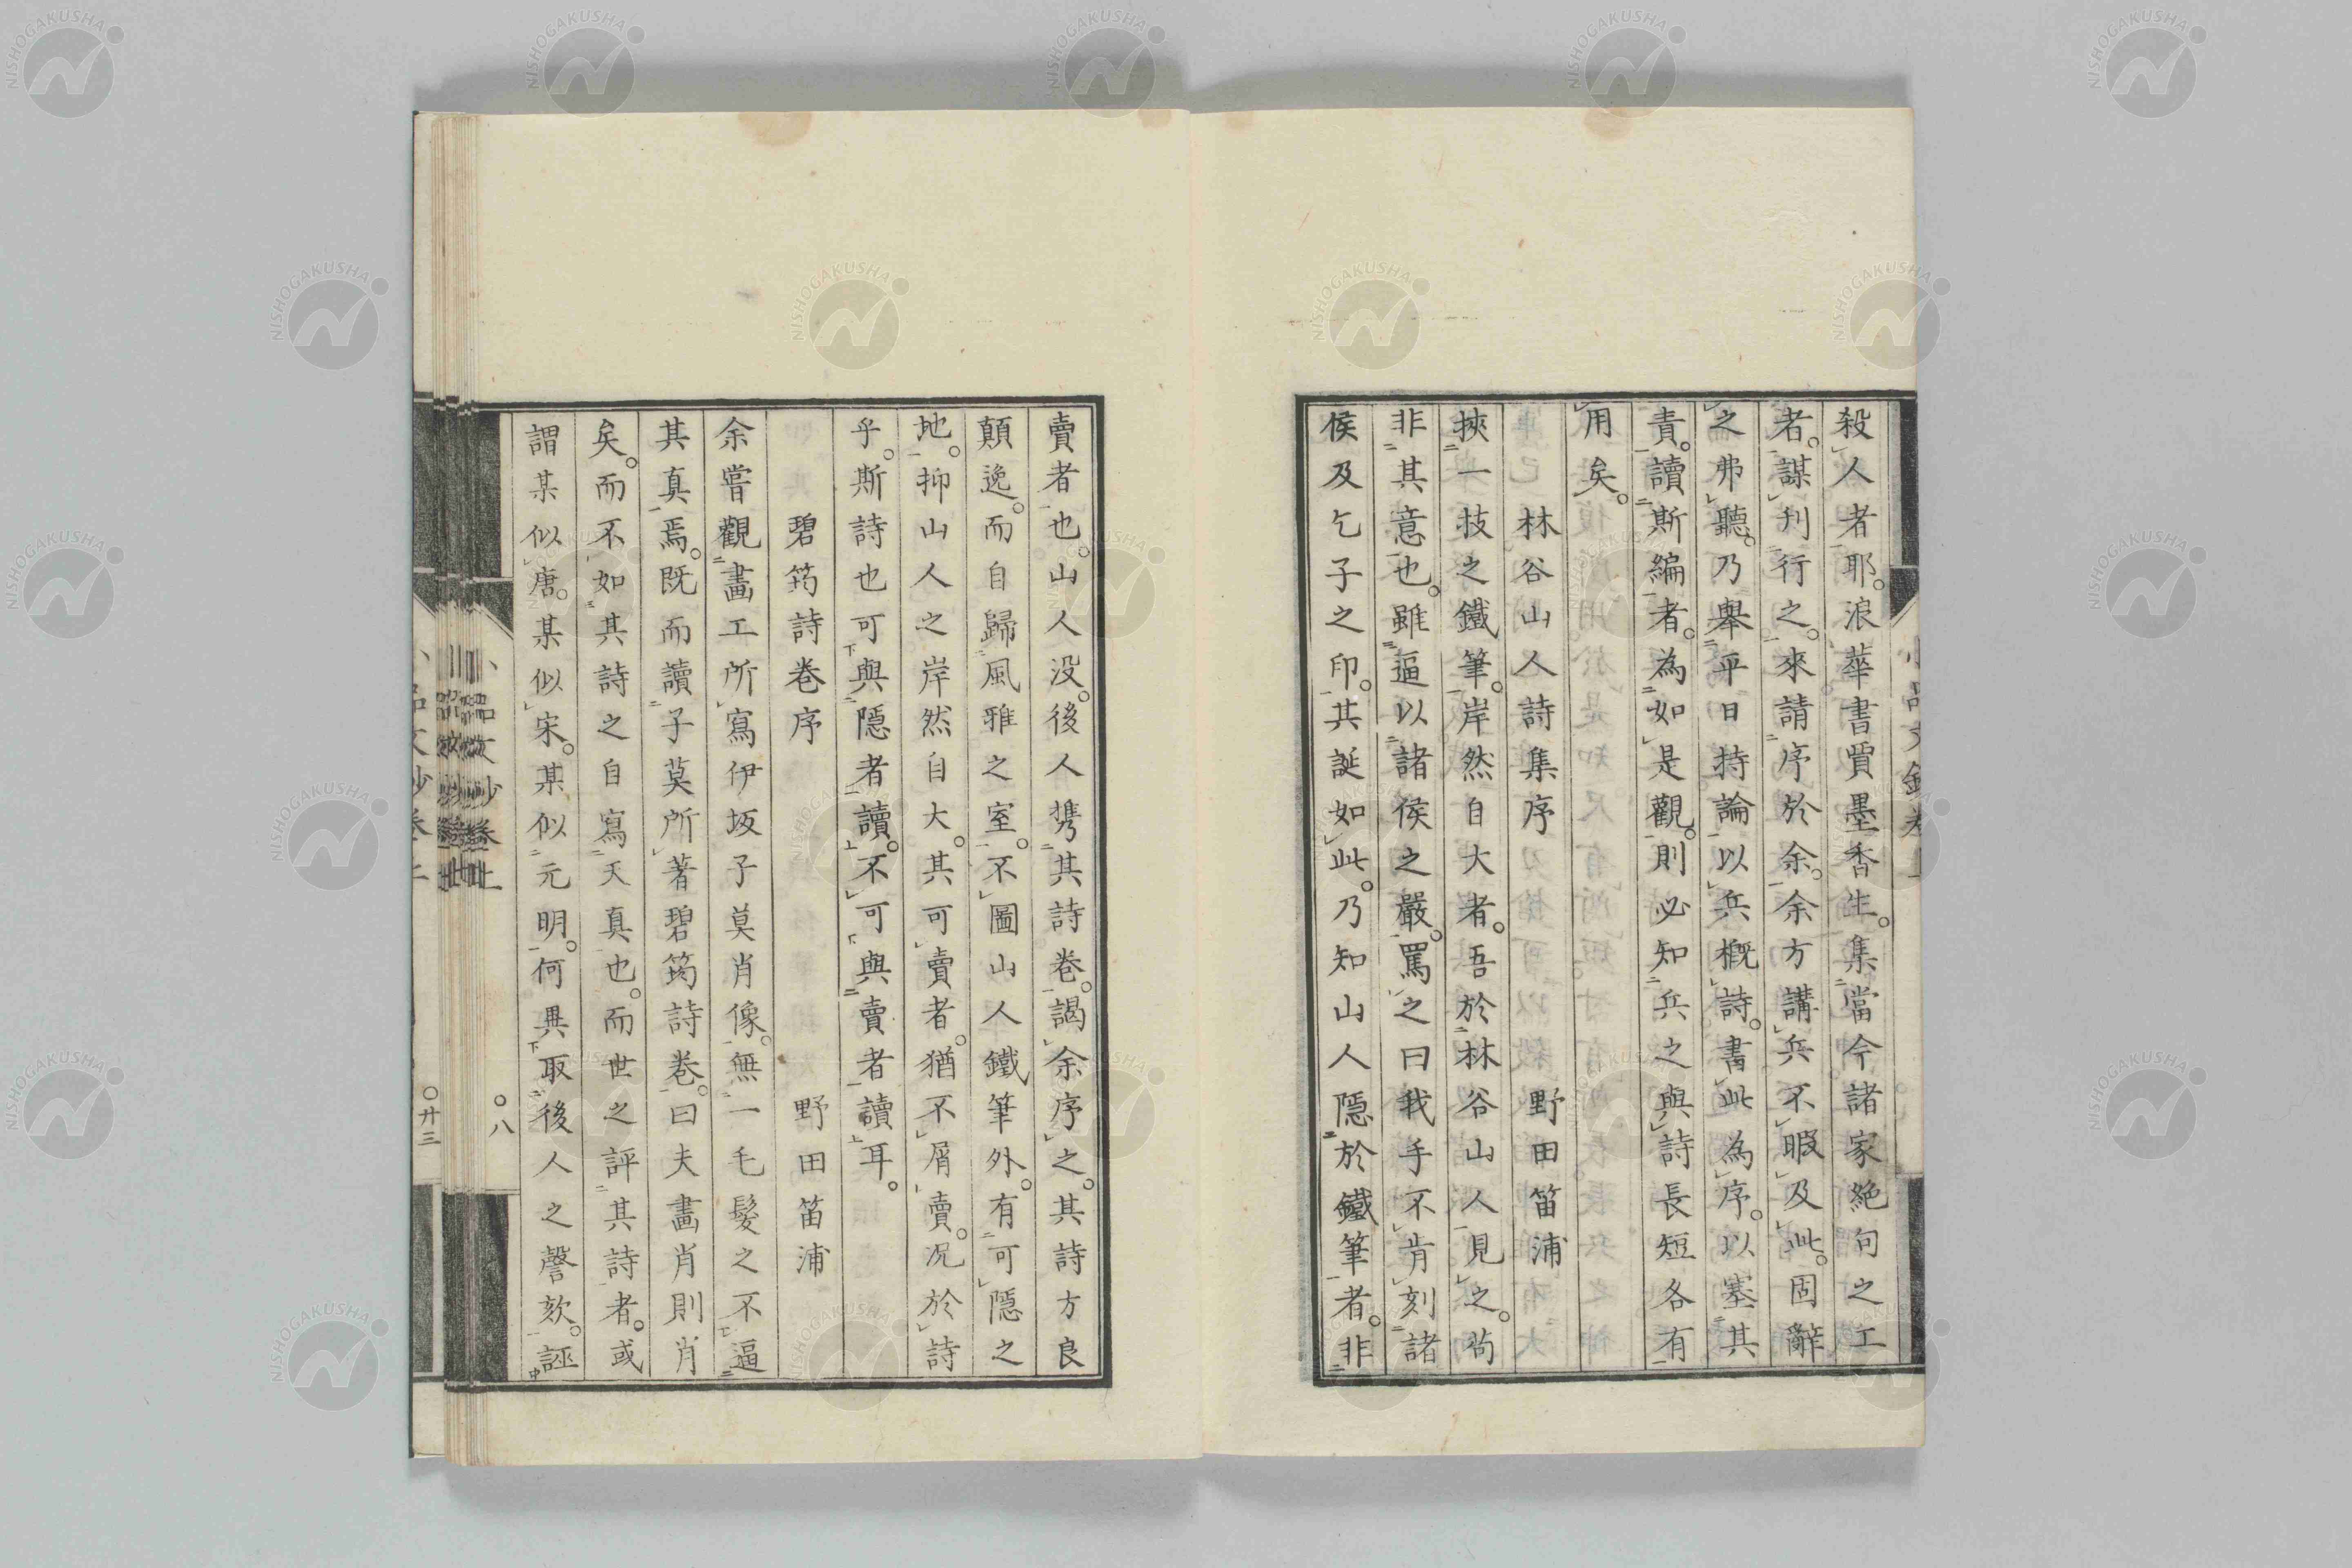 殺人者耶。浪華書賈墨香生。集當今諸家絶句之工
者。謀刊行之。來請序於余。余方講兵不暇及此。固辭
之弗聽。乃舉平日持論以兵概詩。書此為序。以塞其
責。讀斯編者。為如是觀。則必知兵之與詩長短各有
用矣。
林谷山人詩集序 野田笛浦
挾一技之鐵筆。岸然自大者。吾於林谷山人見之。苟
非其意也。雖逼以諸侯之嚴。罵之曰我手不肯刻諸
侯及乞子之印。其誕如此。乃知山人隱於鐵筆者。非
賣者也。山人没。後人携其詩卷。謁余序之。其詩方良
顛逸。而自歸風雅之室。不圖山人鐵筆外。有可隱之
地。抑山人之岸然自大。其可賣者。猶不屑賣。况於詩
乎。斯詩也可與隱者讀。不可與賣者讀耳。
碧筠詩卷序 野田笛浦
余嘗觀畫工所寫伊坂子莫肖像。無一毛髮之不逼
其真焉。既而讀子莫所著碧筠詩卷。曰夫畫肖則肖
矣。而不如其詩之自寫天真也。而世之評其詩者。或
謂某似唐。某似宋。某似元明。何異取後人之謦欬。誣
八
廿三
NISHOGAKUSHA